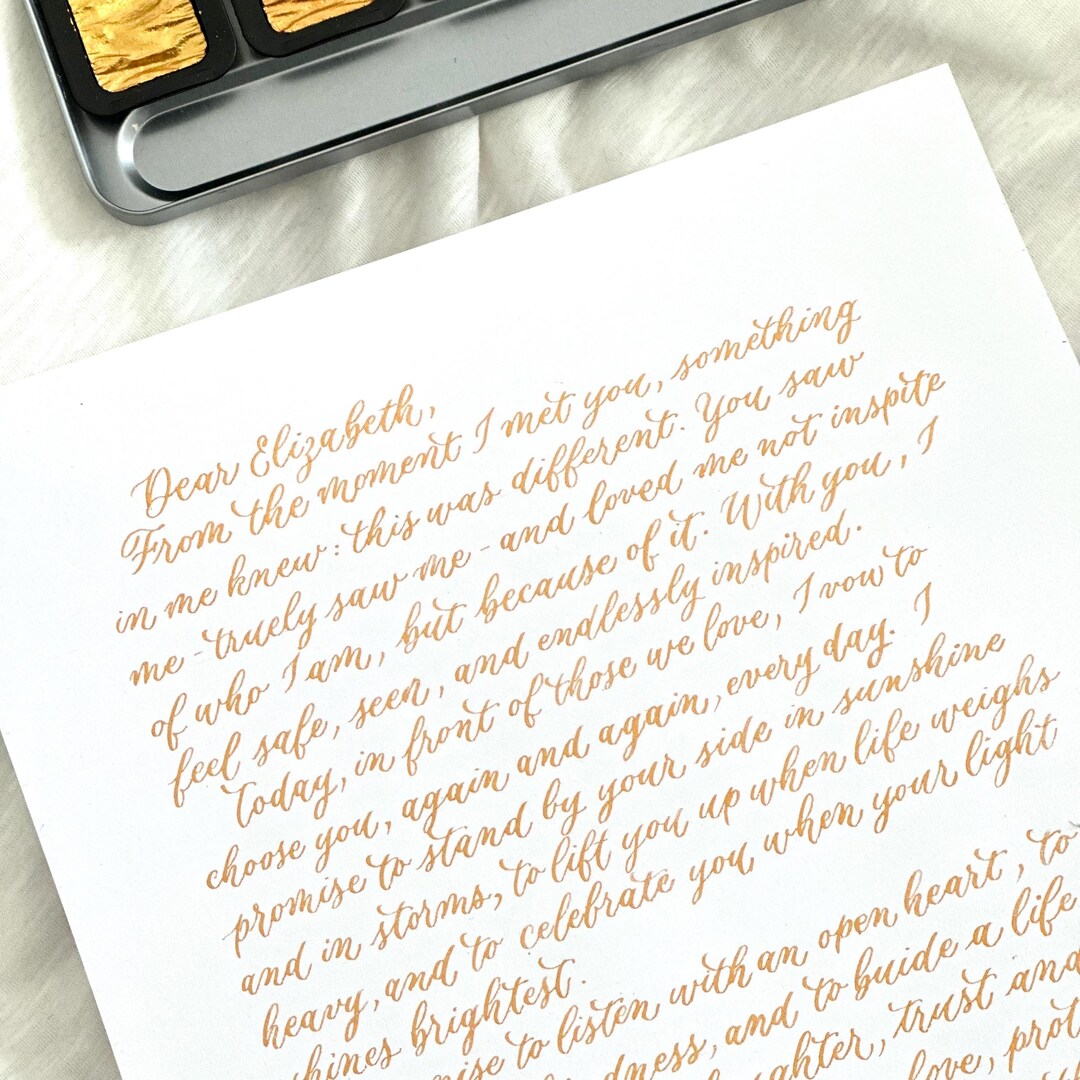 Dear Elizabeth,
From the moment I met you, something
in me knew: this was different. You saw
me - truely saw me - and loved me not inspite
of who I am, but because of it. With you, I
feel safe, seen, and endlessly inspired.
Today, in front of those we love, I vow to
choose you, again and again, every day. I
promise to stand by your side in sunshine
and in storms, to lift you up when life weighs
heavy, and to celebrate you, when your light
hines brightest.
ise to listen with an open heart, to
dness, and to buide a life
ughter, trust and
love, prot